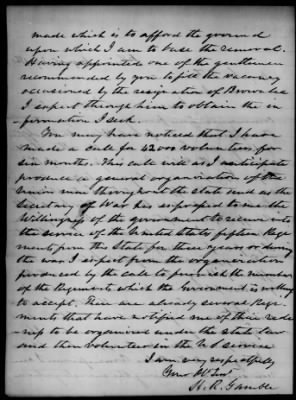 made which is to afford the ground
upon which I am to base the removal.
Having appointed one of the gentlemen
recommended by you to fill the vacancy
occasioned by the resignation of Brownlee
I expect through him to obtain the in
formation I seek.
You may have noticed that I have
made a call for 42000 volunteers for
six months. This call will as I anticipate
produce a general organization of the
Union men throughout the state and as the
Secretary of War has expressed to me the
Willingness of the government to receive into
the service of the United States fifteen Regi
ments from this State for three years or during
the war I expect from the organization
produced by the call to furnish the number
of the Regiments which the Government is willing
to accept. There are already several Regi
ments that have notified me of their read
to be organized under the state law
and then volunteer in the U S service
I am very respectfully
Your Obt Svt
H. R. Gamble